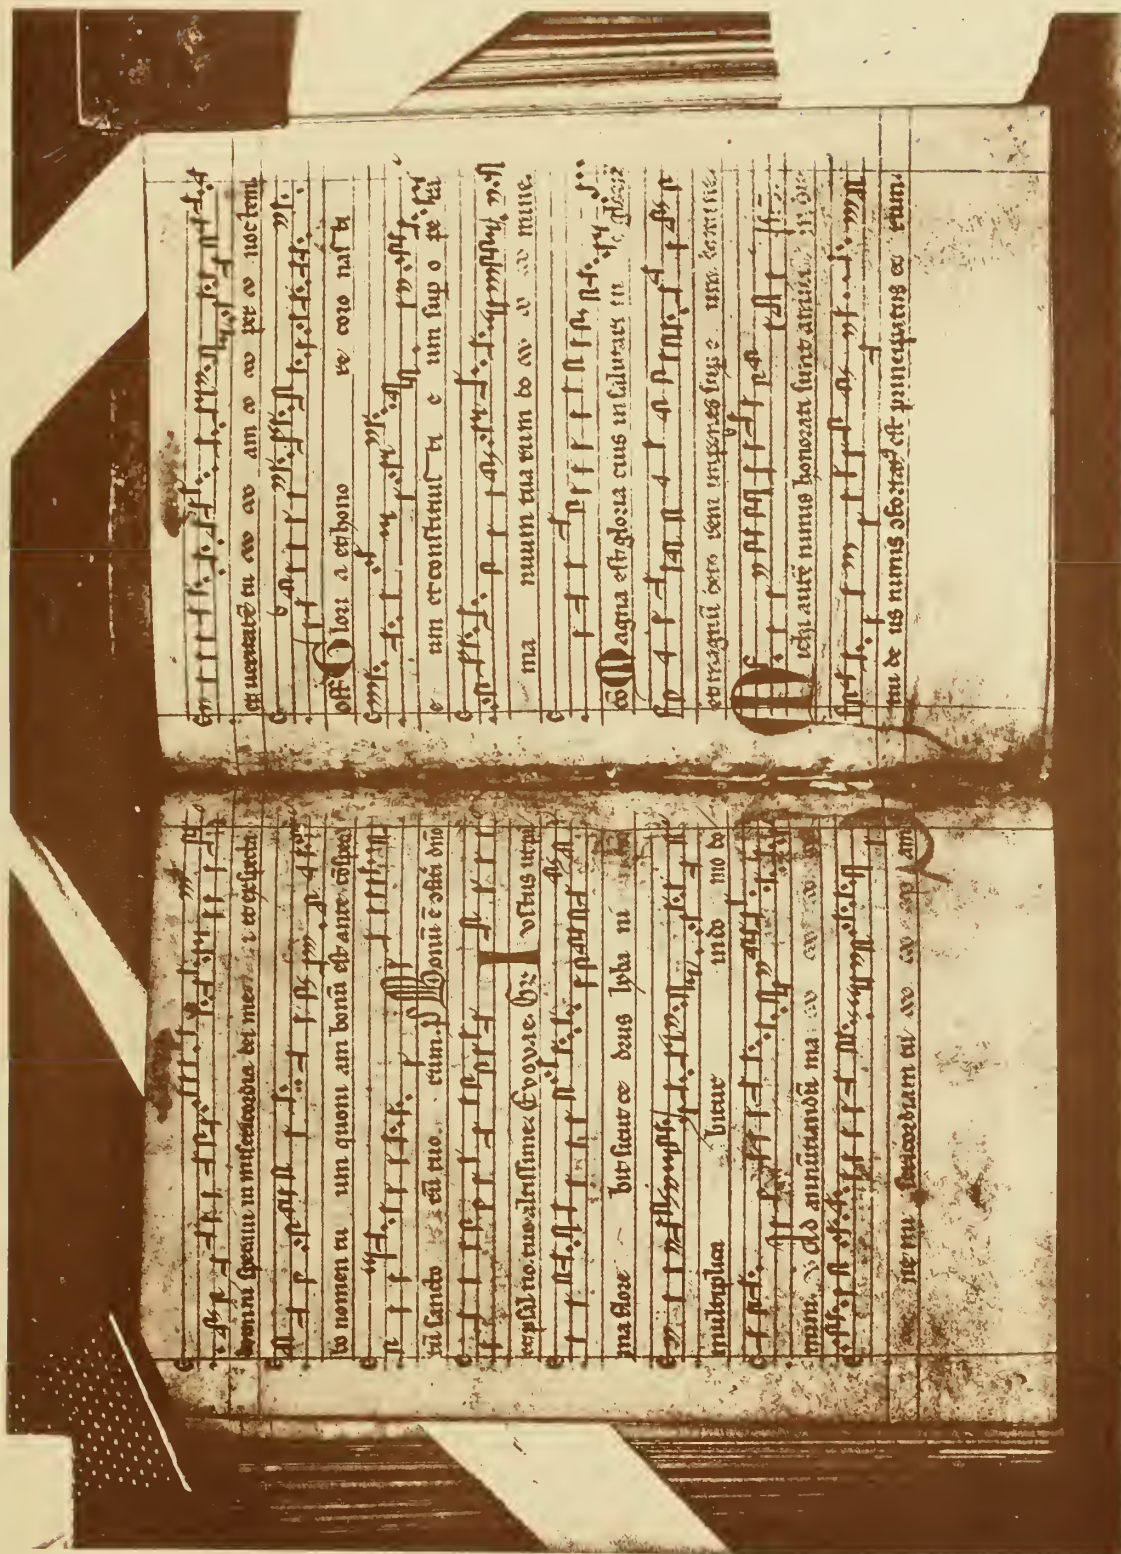 domini speravi in misericordia dei mei et exspecta
bo nomen tu um quoni am bonū est ante cōspec
tū sancto rū tuo rum. p̄ Bonū ē ɔfiteri dn̄o
et psall no. tuo. altissime. Evovae. Gr. Iustus ut pal
ma flore bit sicut ce deus lyba ni
multiplica bitur in do mo do
mini. v Ad annūtiandū ma
ne mi sericordiam tu am
et veritatē tu am per noctem
off Glori a et hono re coro nasti
e um et constituisti e um sup o pe ra
ma nuum tua rum do mine.
cō Magna est gloria eius in salutari tu o gloriā
et magnū deco rem impones sup e um domine.
Michi autē nimis honorati sunt amici
tui de us nimis ɔfortat⁹ est principatus eo rum.